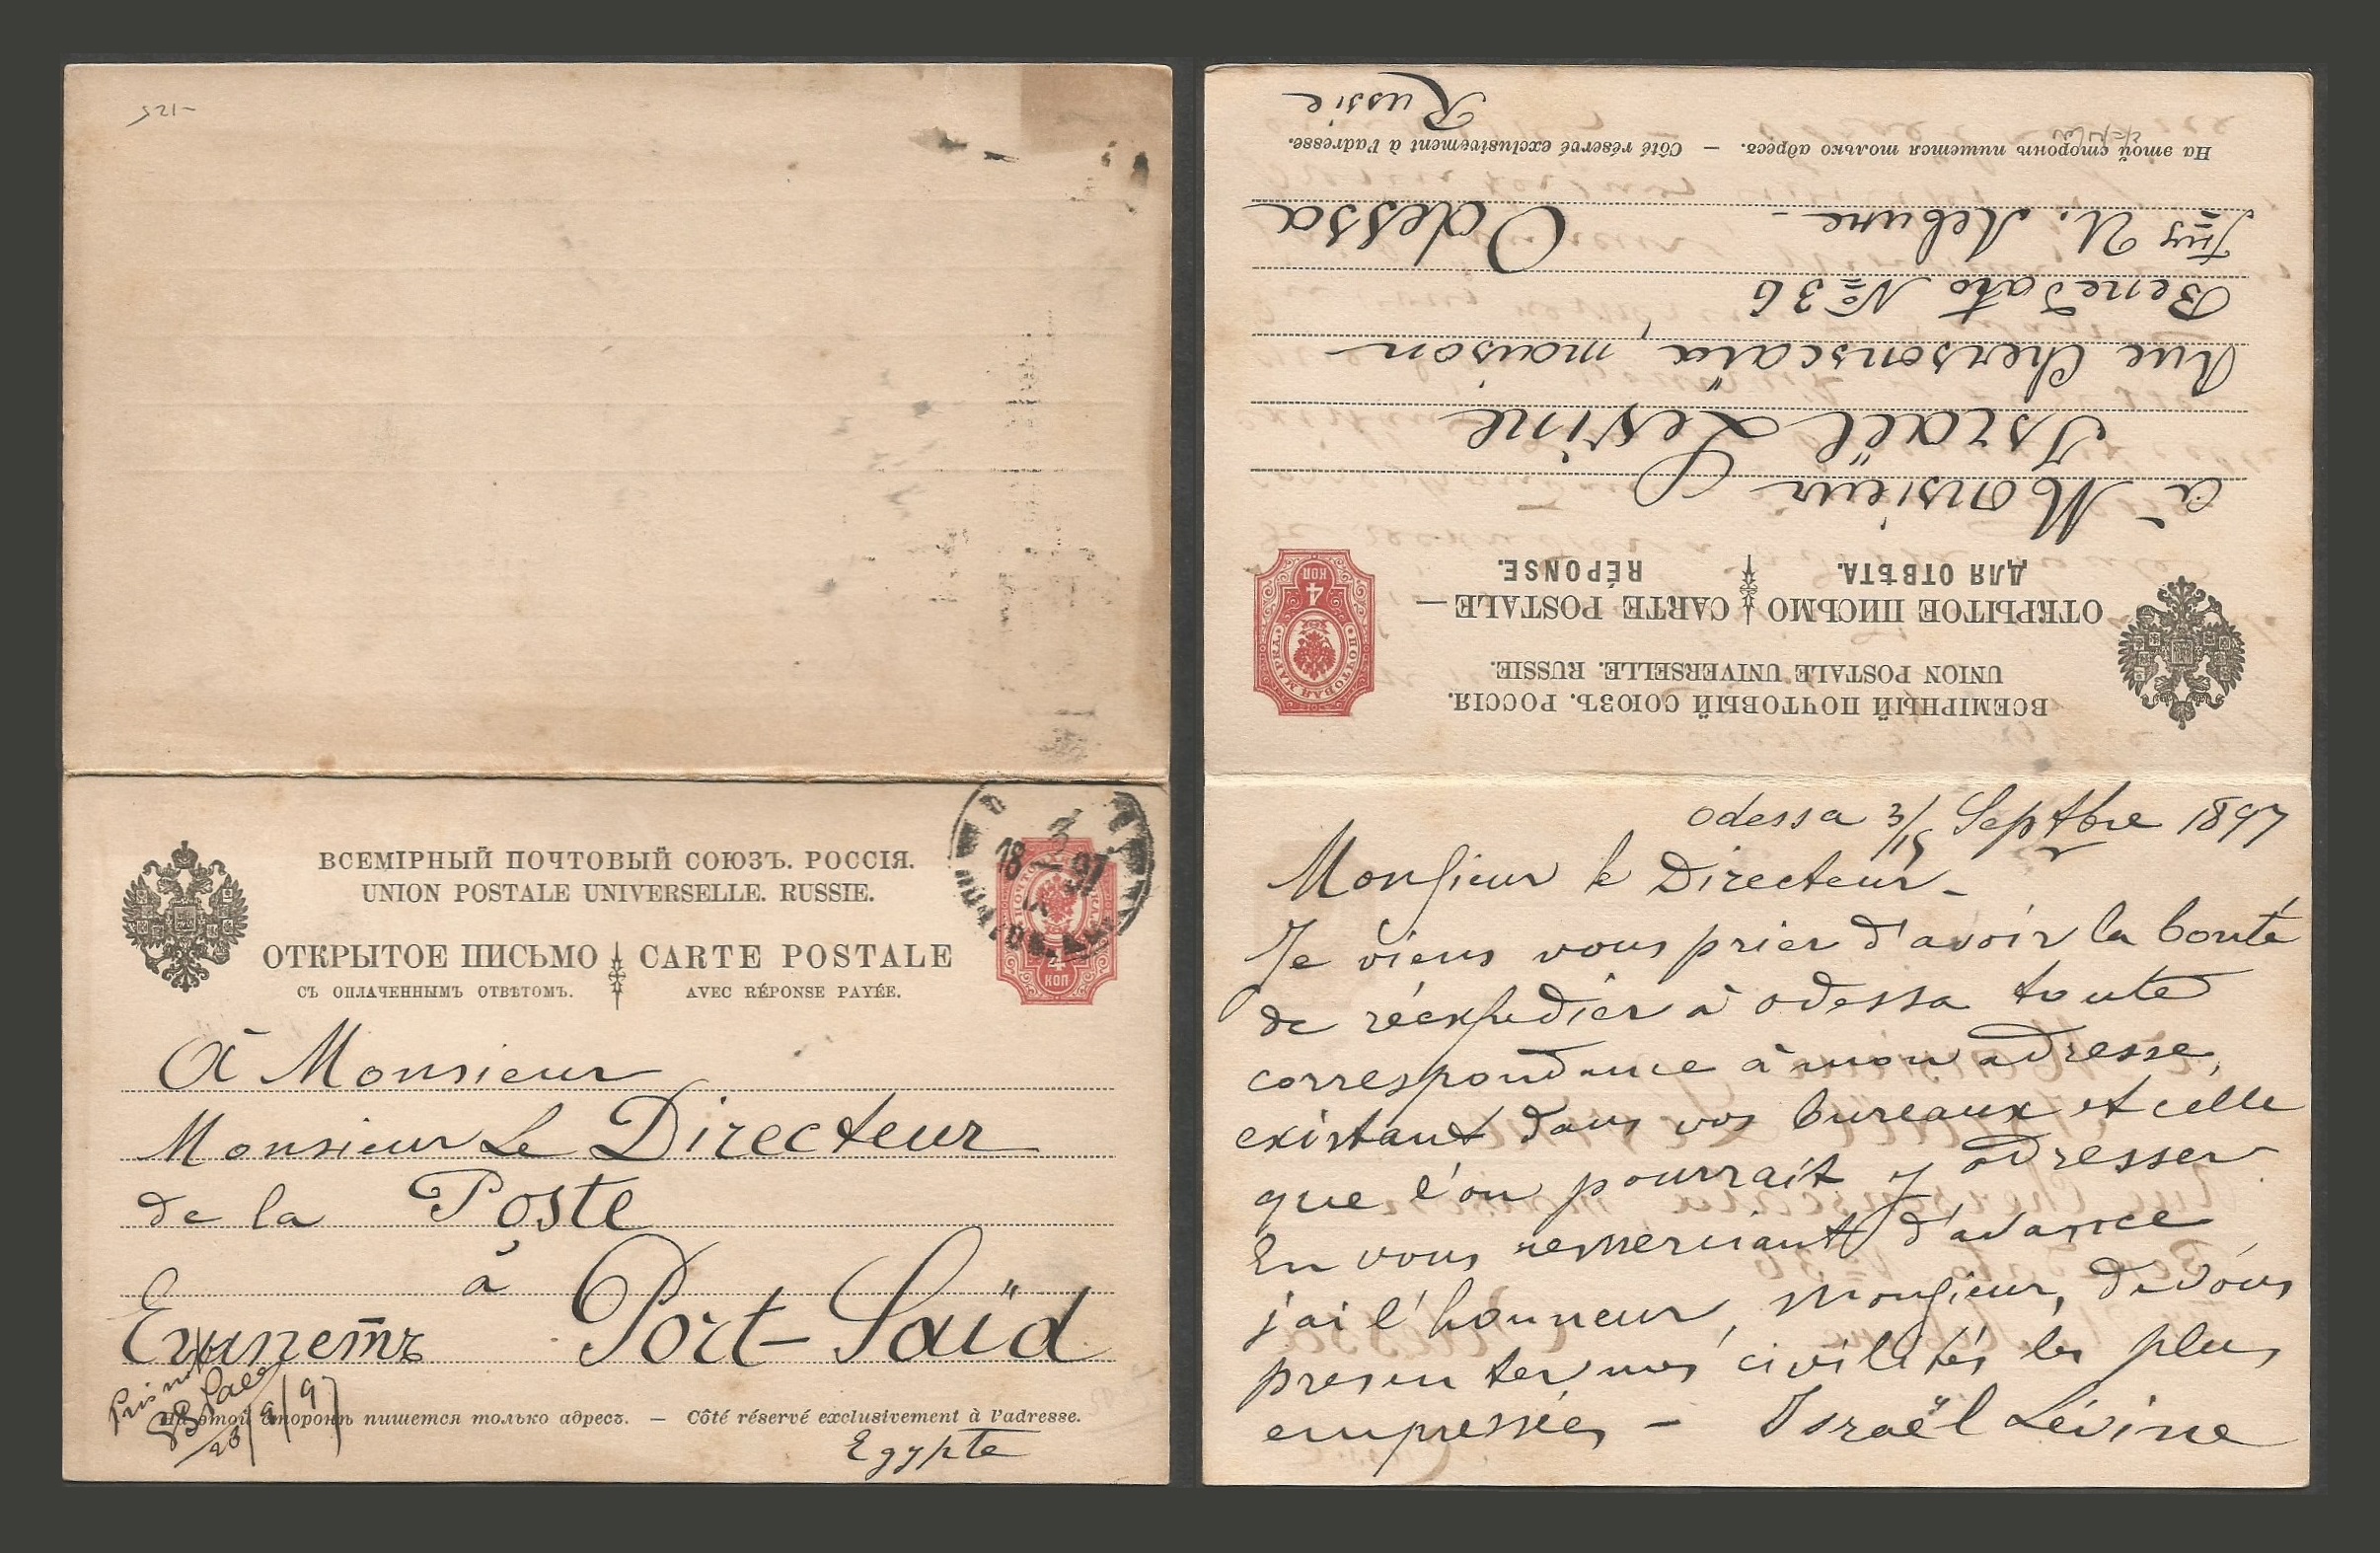 521-
ВСЕМІРНЫЙ ПОЧТОВЫЙ СОЮЗЪ. РОССІЯ.
UNION POSTALE UNIVERSELLE. RUSSIE.
ОТКРЫТОЕ ПИСЬМО CARTE POSTALE
СЪ ОПЛАЧЕННЫМЪ ОТВѢТОМЪ. AVEC RÉPONSE PAYÉE.
3
18 97
4
КОП
À Monsieur
Monsieur Le Directeur
de la Poste
à Port-Saïd
Египетъ
23/9/97
На этой сторонѣ пишется только адресъ. — Côté réservé exclusivement à l'adresse.
Egypte
ВСЕМІРНЫЙ ПОЧТОВЫЙ СОЮЗЪ. РОССІЯ.
UNION POSTALE UNIVERSELLE. RUSSIE.
ОТКРЫТОЕ ПИСЬМО CARTE POSTALE —
ДЛЯ ОТВѢТА. RÉPONSE.
ПОЧТОВАЯ МАРКА
4
КОП
à Monsieur
Israël Levine
Rue Chersonscaïa, maison
Benedato № 36
И. Левине - Odessa
На этой сторонѣ пишется только адресъ. — Côté réservé exclusivement à l'adresse.
Russie
Odessa 3/15 Septbre 1897
Monsieur le Directeur -
Je viens vous prier d'avoir la bonté
de réexpedier à Odessa toute
correspondance à mon adresse,
existant dans vos bureaux et celle
que l'on pourrait y adresser
En vous remerciant d'avance
j'ai l'honneur, Monsieur, de vous
presenter mes civilités les plus
empressées - Israël Lévine